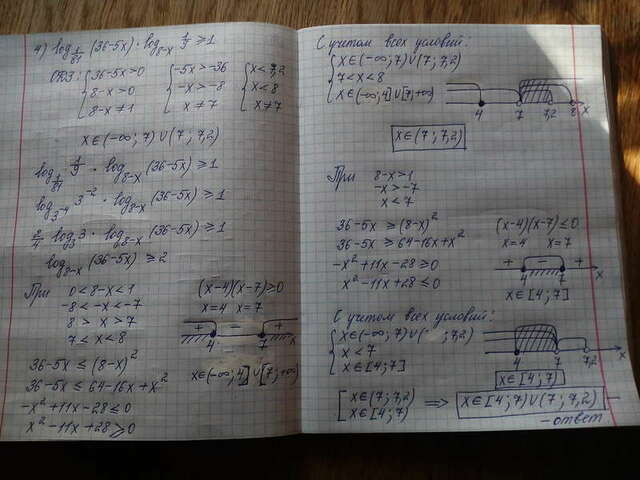 4) log_{1/81} (36-5x) · log_{8-x} 1/9 ≥ 1
ОДЗ: { 36-5x>0 { -5x>-36 { x<7,2
8-x>0 -x>-8 x<8
8-x≠1 x≠7 x≠7
x∈(-∞; 7) ∪ (7; 7,2)
log_{1/81} 1/9 · log_{8-x} (36-5x) ≥ 1
log_{3^{-4}} 3^{-2} · log_{8-x} (36-5x) ≥ 1
2/4 log_3 3 · log_{8-x} (36-5x) ≥ 1
log_{8-x} (36-5x) ≥ 2
При 0<8-x<1
-8<-x<-7
8 > x > 7
7 < x < 8
36-5x ≤ (8-x)²
36-5x ≤ 64-16x+x²
-x²+11x-28 ≤ 0
x²-11x+28 ≥ 0
(x-4)(x-7) ≥ 0
x=4 x=7
+ - +
4 7 x
x∈(-∞; 4] ∪ [7; +∞)
С учетом всех условий:
{ x∈(-∞; 7) ∪ (7; 7,2)
7<x<8
x∈(-∞; 4] ∪ [7; +∞)
4 7 7,2 8 x
x∈(7; 7,2)
При 8-x>1
-x>-7
x<7
36-5x ≥ (8-x)²
36-5x ≥ 64-16x+x²
-x²+11x-28 ≥ 0
x²-11x+28 ≤ 0
(x-4)(x-7) ≤ 0
x=4 x=7
+ - +
4 7 x
x∈[4; 7]
С учетом всех условий:
{ x∈(-∞; 7) ∪ ( ; 7,2)
x<7
x∈[4; 7]
4 7 7,2 x
x∈[4; 7)
[ x∈(7; 7,2)
x∈[4; 7) ⟹ x∈[4; 7) ∪ (7; 7,2)
-ответ